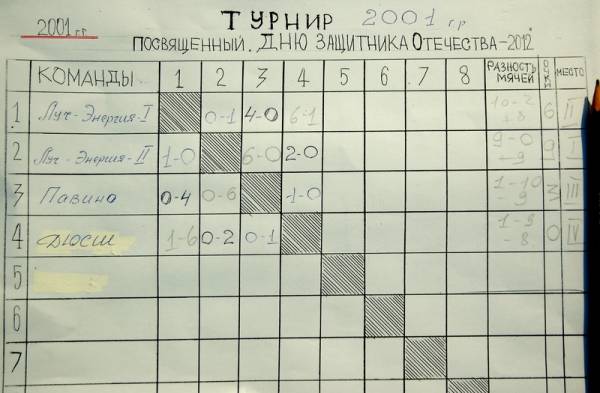 2001 г.г.
ТУРНИР 2001 г.р
ПОСВЯЩЕННЫЙ. ДНЮ ЗАЩИТНИКА ОТЕЧЕСТВА-2012
КОМАНДЫ 1 2 3 4 5 6 7 8 РАЗНОСТЬ МЯЧЕЙ ОЧКИ МЕСТО
1 Луч-Энергия-I 0-1 4-0 6-1 10-2 +8 6 II
2 Луч-Энергия-II 1-0 6-0 2-0 9-0 +9 9 I
3 Павино 0-4 0-6 1-0 1-10 -9 3 III
4 ДЮСШ 1-6 0-2 0-1 1-9 -8 0 IV
5
6
7